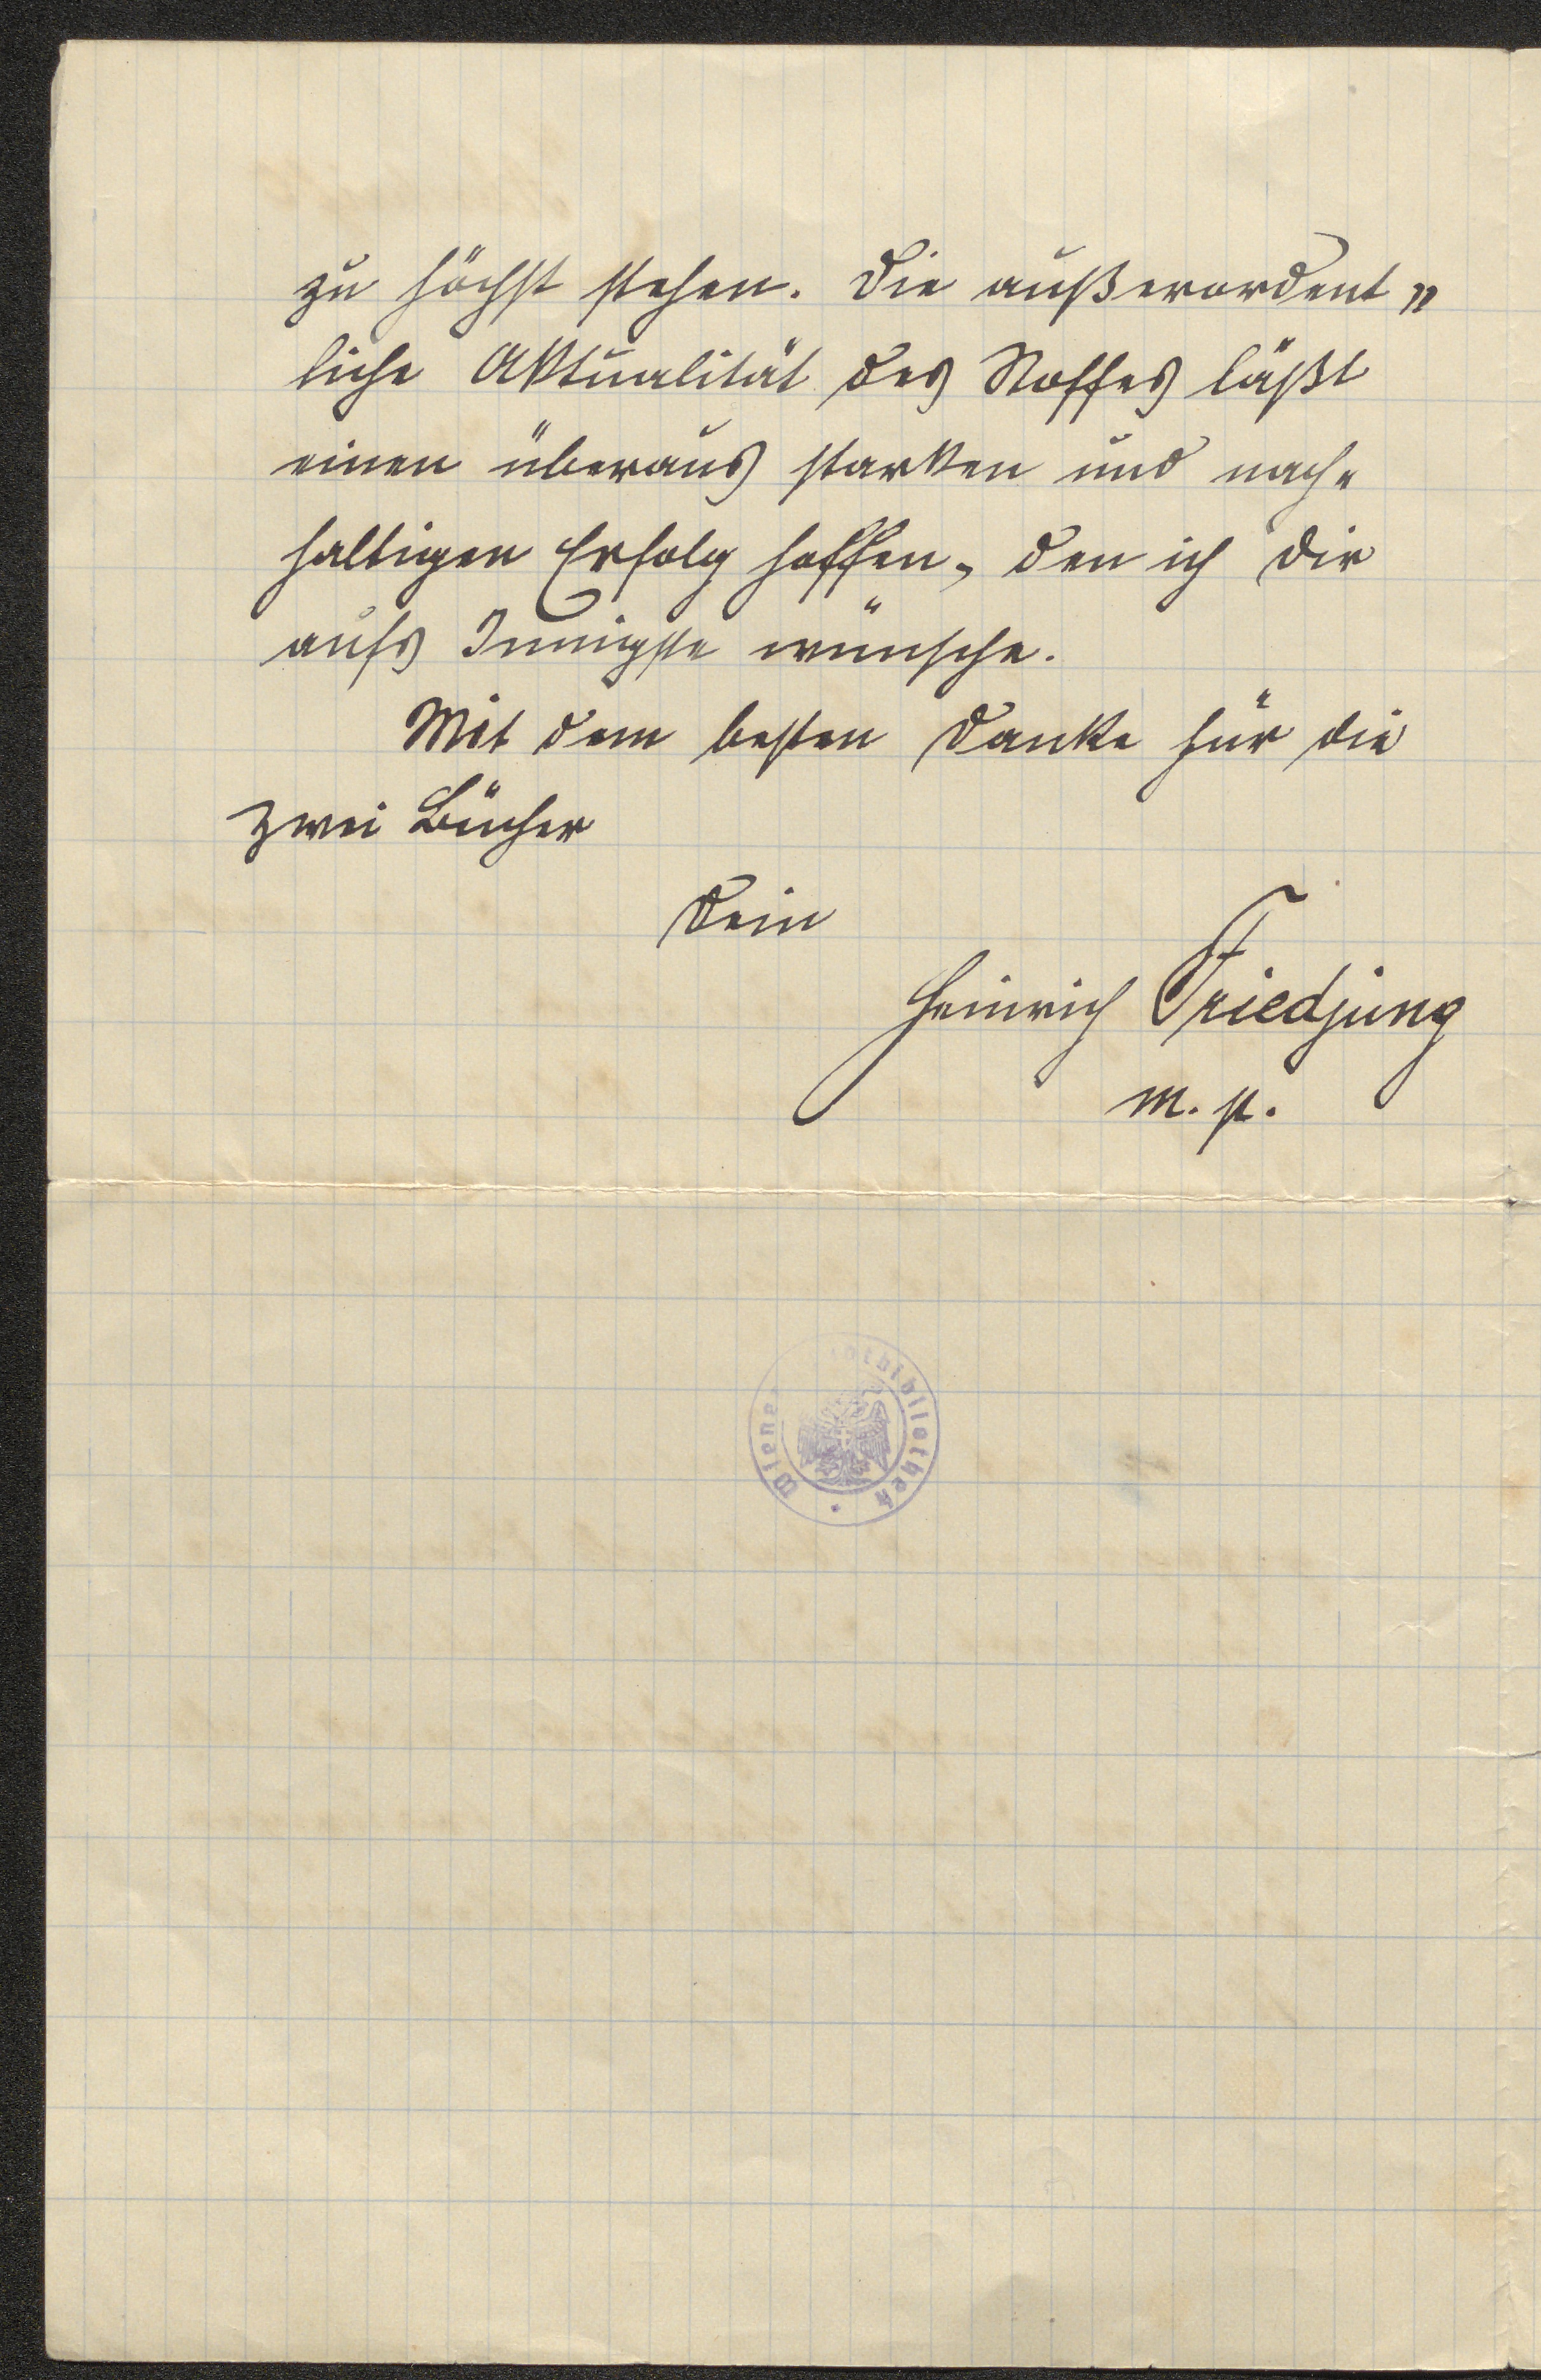 zu höchst stehen. Die außerordent„
liche Aktualität des Stoffes läßt
einen überaus starken und nach„
haltigen Erfolg hoffen, den ich Dir
aufs Innigste wünsche.
Mit dem besten Danke für die
zwei Bücher
Dein
Heinrich Friedjung
m. p.